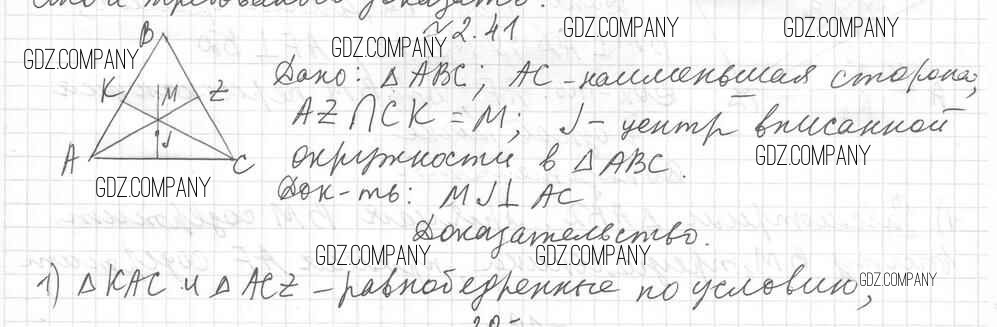 №2.41
B
GDZ.COMPANY GDZ.COMPANY GDZ.COMPANY GDZ.COMPANY
K M Z
Дано: △ABC; AC - наименьшая сторона;
AZ ∩ CK = M; J - центр вписанной
J
A C
окружности в △ABC. GDZ.COMPANY
GDZ.COMPANY
Док-ть: MJ ⊥ AC
Доказательство.
GDZ.COMPANY GDZ.COMPANY
1) △KAC и △ACZ - равнобедренные по условию, GDZ.COMPANY